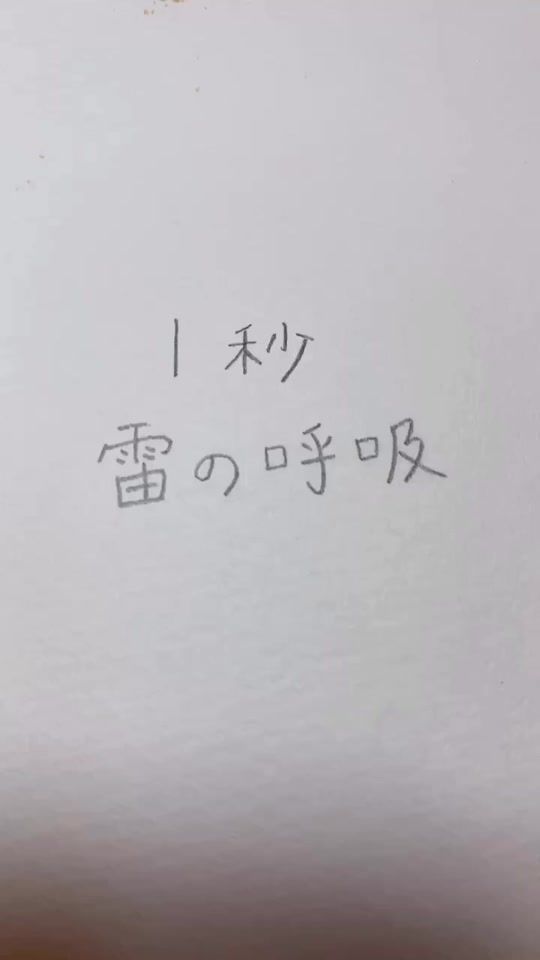 1秒
雷の呼吸